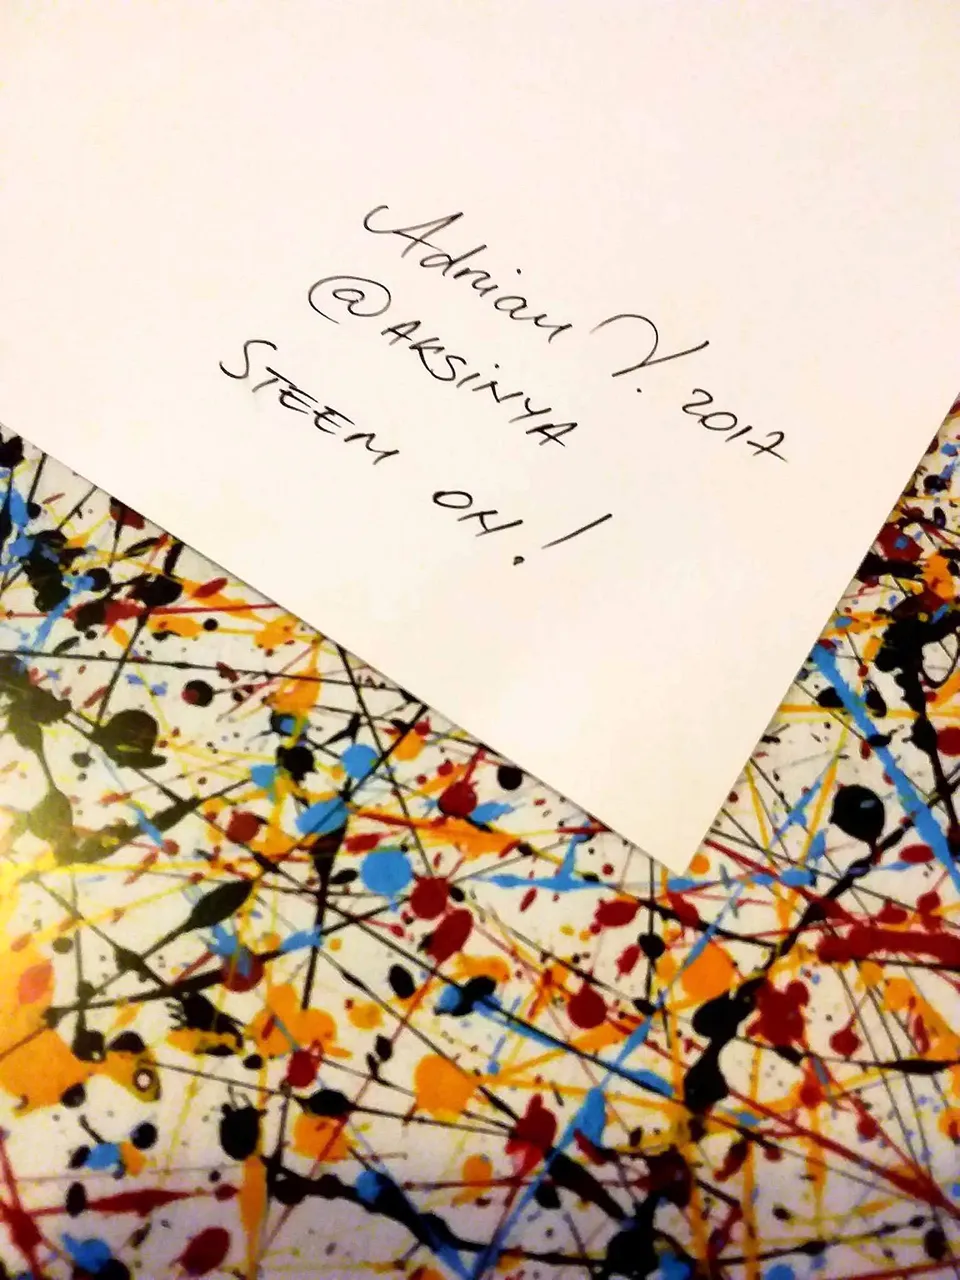 Adrian V. 2017
@AKSiNYA
STEEM ON!